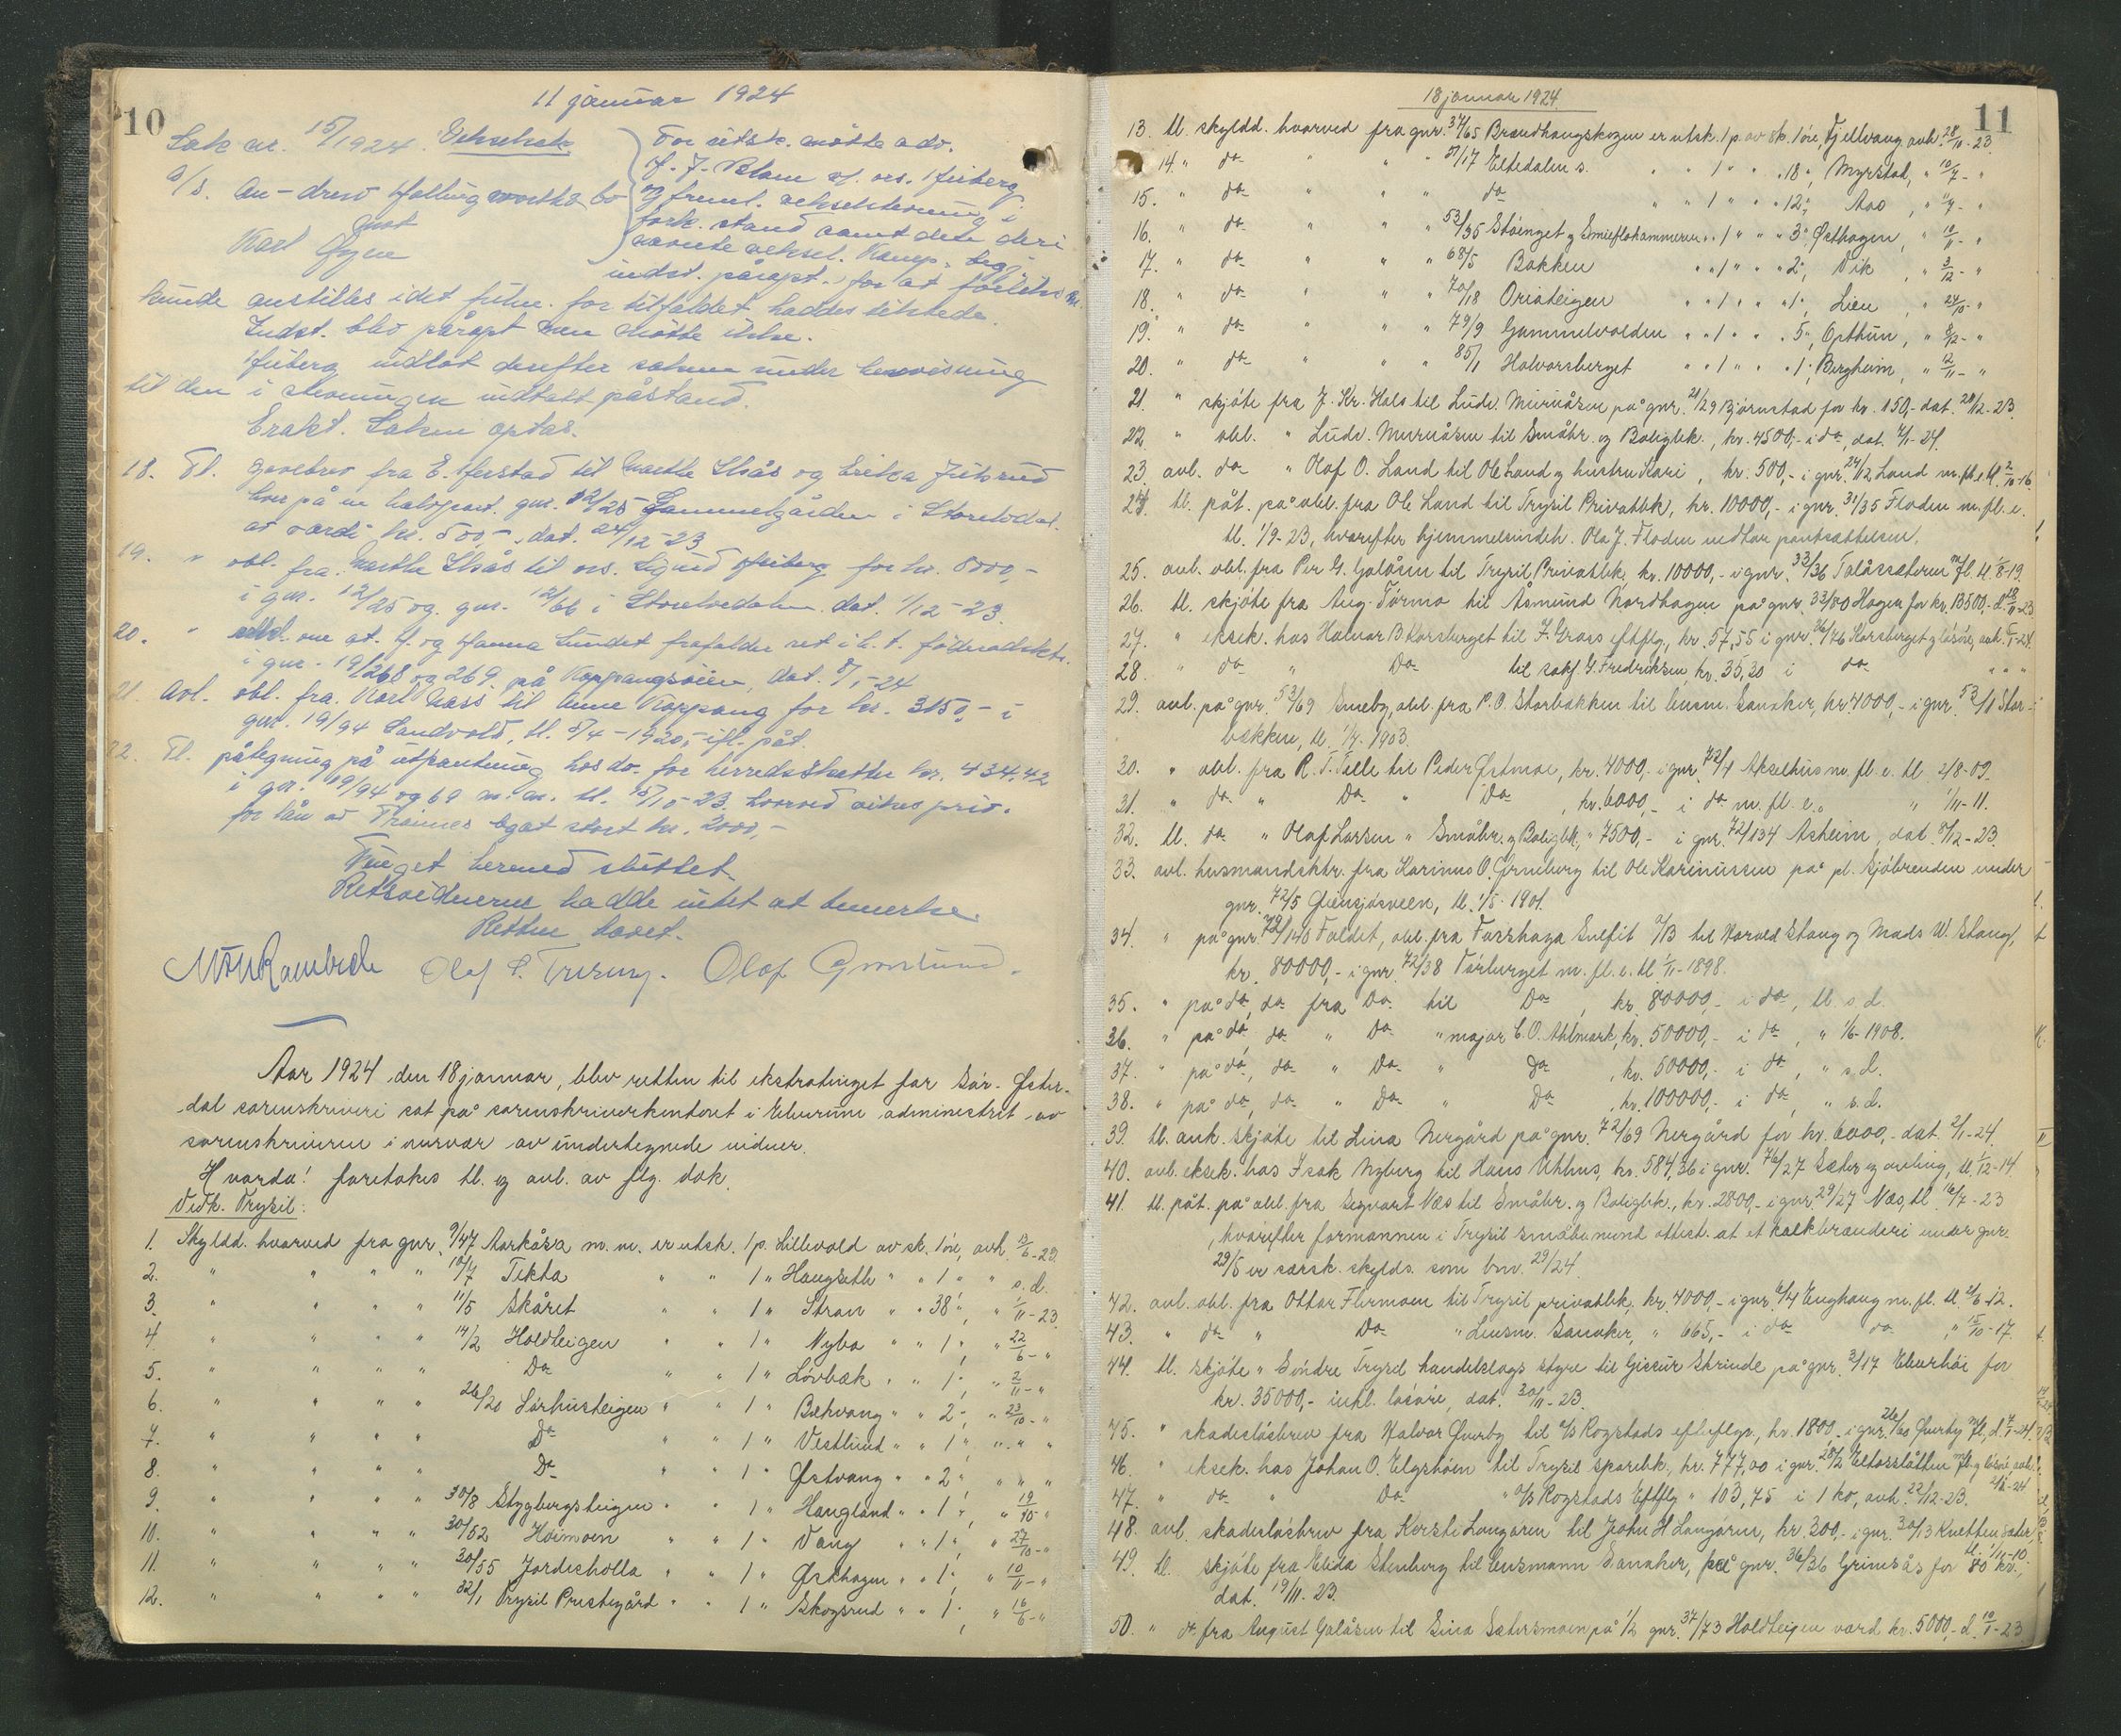 10
11 januar 1924
Sak nr. 15/1924. Vekselsak
a/s. An-drew Hollingworths bo
mot
Karl Øgne
For utstk. møtte adv.
og freml. vekselstevning i
fork. stand samt den deri
nævnte veksel.
indst. påropt. for at forliks m.
kunde anstilles idet fuldm. for tilfældet haddes tilstede.
Indst. blev påropt men møtte ikke.
indlot derefter saken under henvisning
til den i stevningen indtatt påstand.
Erakt. Saken optas.
18. Tl. gavebrev fra E. til Marthe Skås og Erika
hver på en halvpart. gnr. 12/25 Gammelgården i Storelvdal.
at værdi kr. 500,- , dat. 24/12-23
19. " obl. fra. Marthe Skås til ors. Sigurd for kr. 8000,-
i gnr. 12/25 og. gnr. 12/66 i Storelvedalen. dat. 1/12-23.
20. " om at. H. og Hanna Sundet frafalder ret i h. t. føderådsktr.
i gnr. 19/268 og 269 på Koppangsøien, dat. 8/1-24
21. Avl. obl. fra. Karl Nass til Anne Koppang for kr. 3150,- i
gnr. 19/94 Sandvold, tl. 8/4-1920, ifl. påt.
22. Tl. påtegning på utpantning hos do. for herredsskatter kr. 434.42
i gnr. 19/94 og 69 m. m. tl. 15/10-23. hvorved vikes prio.
for lån av legat stort kr. 2000,-
Tinget hermed sluttet.
Retsvidnerne hadde intet at bemerke.
Retten hævet.
Olaf Olaf Grønlund.
Aar 1924 den 18 januar, blev retten til ekstratinget for Sør-Øster-
dal sorenskriveri sat på sorenskriverkontoret i Elverum administret av
sorenskriveren i nærvær av undertegnede vidner.
Hvorda! foretokes tl. og avl. av flg. dok.
Vedk. Trysil:
1. Skyldd. hvorved fra gnr. 9/47 Aarkåsa m. m. er utsk. 1 p. Lillevold av sk. 1 øre, avh. 13/6-23.
2. " " " " 10/7 Tekta " " 1 " Haugseth " " 1 " " s. d.
3. " " " " 11/5 Skåret " " 1 " Stran " " 38 " , " 1/11-23.
4. " " " " 14/2 Holdteigen " " 1 " Nybo " " 1 " , " 22/6-"
5. " " " " Do " " 1 " Løvbæk " " 1 " , " 2/11-"
6. " " " " 26/20 Sørhusteigen " " 1 " Bækvang " " 2 " , " 23/10-"
7. " " " " Do " " 1 " Vestlund " " 1 " , " " "
8. " " " " Do " " 1 " Østvang " " 2 " , " " "
9. " " " " 30/8 Stygbergsteigen " " 1 " Haugland " " 1 " , " 19/10-"
10. " " " " 30/52 Heimoen " " 1 " Vang " " 1 " , " 27/10-"
11. " " " " 30/55 Jordesholla " " 1 " Østhagen " " 1 " , " 10/11-"
12. " " " " 32/1 Trysil Prestegård " " 1 " Skogsrud " " 1 " , " 16/6-"
11
18 januar 1924
13. tl. skyldd. hvorved fra gnr. 34/65 Brændhaugskogen er utsk. 1 p. av sk. 1 øre, Fjellvang, avh. 28/11-23.
14. " do " " " 51/17 Eltedalen s. " " 1 " " " 18 " , Myrstad, " 10/7-"
15. " do " " " do " " 1 " " " 12 " , Aao , " 1/9-"
16. " do " " " 53/35 Støenget og Smieflohammeren " " 1 " " " 3 " , Østhagen, " 10/11-"
17. " do " " " 68/5 Bakken " " 1 " " " 2 " , Vik , " 3/12-"
18. " do " " " 70/18 Oriateigen " " 1 " " " 1 " , Lien , " 24/10-"
19. " do " " " 79/9 Gammelvolden " " 1 " " " 5 " , Opthun, " 8/12-"
20. " do " " " 85/1 Halvorsberget " " 1 " " " 1 " , Bergheim, " 12/11-"
21. " skjøte fra J. Kr. Hals til Ludv. Muruåsen på gnr. 21/29 Bjørnstad for kr. 150,- dat. 20/12-23.
22. " obl. " Ludv. Muruåsen til Småbr. og Boligbk., kr. 4500,- i do, dat. 4/1-24.
23. avl. do " Olaf O. Land til Ole Land og hustru Kari, kr. 500,- i gnr. 24/12 Land m. fl. e. tl. 2/10-16.
24. tl. påt. på obl. fra Ole Land til Trysil Privatbk, kr. 10000,- i gnr. 31/35 Floden m. fl. e.
tl. 1/9-23, hvorefter hjemmelsindeh. Ola J. Floden vedtar pantsættelsen.
25. avl. obl. fra Per G. Galåsen til Trysil Privatbk, kr. 10000,- i gnr. 33/36 Galåssæteren m fl. tl. 1/8-19.
26. tl. skjøte fra Aug. Tørmo til Asmund Nordhagen på gnr. 33/80 Hagen for kr. 13500,- d. 18/11-23.
27. " eksek. hos Halvor B. Korsberget til J. Grøss eftflg, kr. 57,55 i gnr. 36/76 Korsberget og løsøre, avh. 5/1-24.
28. " do " Do til sakf. G. Fredriksen, kr. 35,20 i do " " "
29. avl. på gnr. 53/69 Smeby, obl. fra P. O. Storbækken til lensm. Sanaker, kr. 4000,- i gnr. 53/1 Stor-
bækken, tl. 1/4-1903.
30. " obl. fra R. T. Telle til Peder Østmoe, kr. 4000,- i gnr. 72/4 Akselhus m. fl. e. tl. 2/8-09.
31. " do " Do " Do , kr. 6000,- i do m. fl. e. " " 1/11-11.
32. tl. do " Olaf Larsen " Småbr. og Boligbk, " 7500,- i gnr. 72/134 Asheim, dat. 8/12-23.
33. avl. husmandsktr. fra Karinus O. Grønberg til Ole Karinussen på pl. Sjøbrenden under
gnr. 72/5 Grønsjøveen, tl. 1/5-1901.
34. " på gnr. 72/140 Foldet, obl. fra Fosshaga Sulfit A/B til Norvald Stang og Mads W. Stang,
kr. 80000,- i gnr. 72/38 Vårberget m. fl. e. tl. 1/11-1898.
35. " på do, do fra Do til Do , kr. 80000,- i do, tl. s. d.
36. " på do, do " Do " major C. O. Ahlmark, kr. 50000,- i do, " 1/6-1908.
37. " på do, do " Do " Do , kr. 50000,- i do, " s. d.
38. " på do, do " Do " Do , kr. 100000,- i do, " s. d.
39. tl. auk. skjøte til Lina Nergård på gnr. 72/69 Nergård for kr. 6000,- dat. 2/1-24.
40. avl. eksek. hos Isak Nyberg til Hans Uhhus, kr. 584,36 i gnr. 76/27 Sæter og avling, tl. 1/12-14.
41. tl. påt. på obl. fra Sigvart Næs til Småbr. og Boligbk., kr. 2800,- i gnr. 29/27 Næs, tl. 16/7-23
, hvorefter formannen i Trysil småbr. nemnd attest. at et kalkbrænderi under gnr.
29/5 er særsk. skylds. som bnr. 29/24.
42. avl. obl. fra Ottar Flermoen til Trysil privatbk, kr. 4000,- i gnr. 6/4 Enghaug m. fl. tl. 2/6-12.
43. " do " Do " Lensm. Sanaker, " 665,- i do do , " 15/10-17.
44. tl. skjøte " Søndre Trysil handelslags styre til Gissur Skrinde på gnr. 3/17 Elverhøi for
kr. 35000,- inkl. løsøre, dat. 30/11-23.
45. " skadesløsbrev fra Halvor Øverby til A/S Rogstads efterflgr., kr. 1800.- i gnr. Øverby m fl, d. 7/1-24.
46. " eksek. hos Johan O. Elgshøen til Trysil sparebk., kr. 777,00 i gnr. 28/2 Eltosslåtten m fl. og løsøre, avh. 2/1-24
47. " do " Do " A/S Rogstads Eftflg " 103,75 i 1 ko, avh. 22/12-23.
48. avl. skadesløsbrev fra Kersti Langåren til John H. Langåren, kr. 300,- i gnr. 30/13 Knetten sæter, tl. 1/11-10.
49. tl. skjøte fra Elida Stenberg til lensmann Sanaker, på gnr. 36/36 Grimsås for 80 kr.,
dat. 19/11-23.
50. " do fra August Galåsen til Sina Sætersmoen på 1/2 gnr. 37/73 Holdteigen værd kr. 5000,- d. 10/1-23